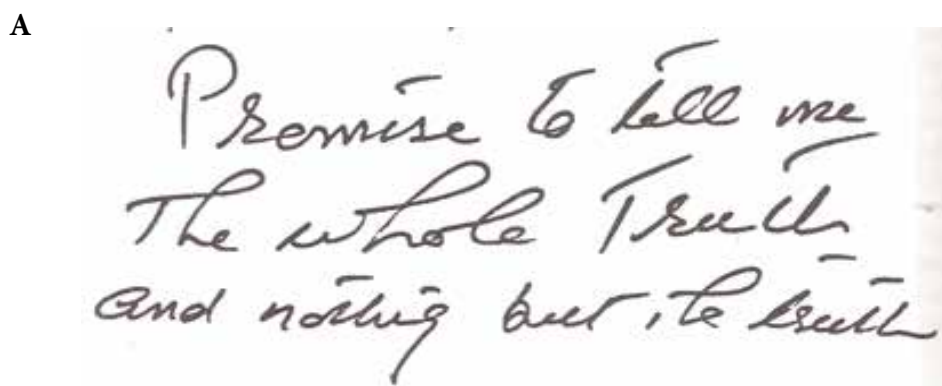 A
Promise to tell me
The whole Truth
and nothing but the truth